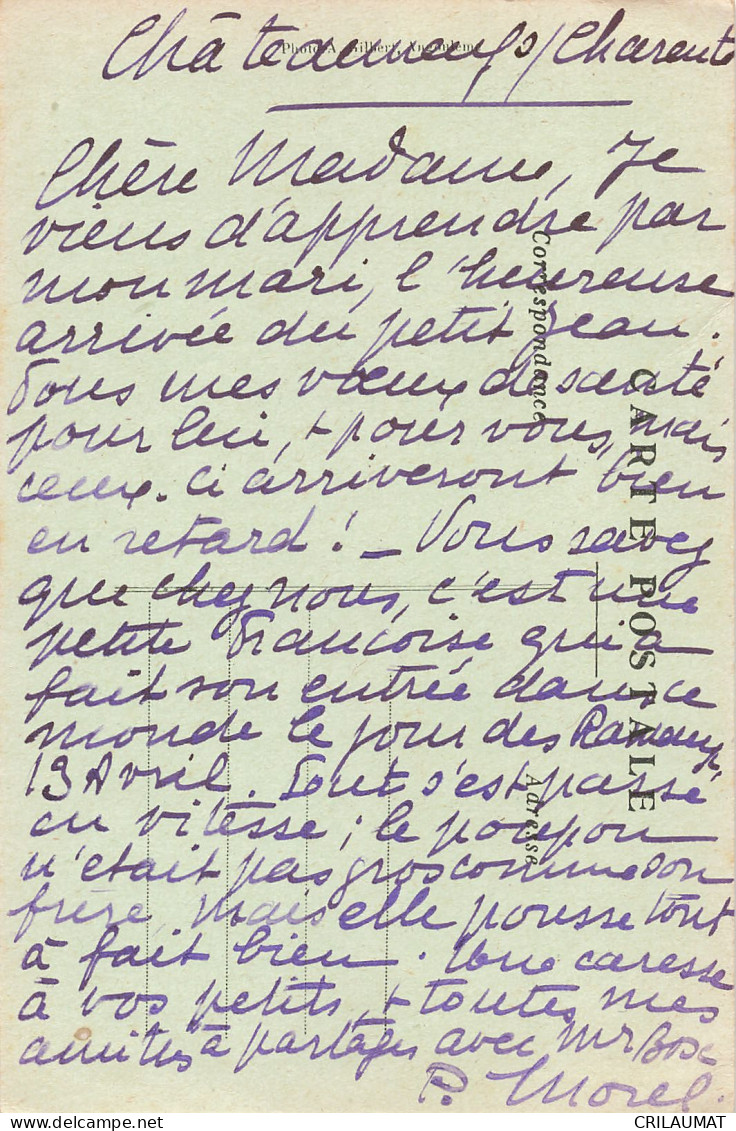 Photo A. Gilbert, Angoulême
Châteauneuf s/ Charente
Chère Madame, Je
viens d'apprendre par
mon mari, l'heureuse
arrivée du petit Jean.
Tous mes vœux de santé
pour lui, + pour vous, mais
ceux-ci arriveront bien
en retard ! _ Vous savez
que chez nous, c'est une
petite Françoise qui a
fait son entrée dans ce
monde le jour des Rameaux
13 Avril. Tout s'est passé
en vitesse ; le poupon
n'était pas gros comme son
frère, mais elle pousse tout
à fait bien. Une caresse
à vos petits, + toutes mes
amitiés à partager avec Mr Bosc
P. Morel.
CARTE POSTALE
Correspondance
Adresse
www.delcampe.net
CRILAUMAT